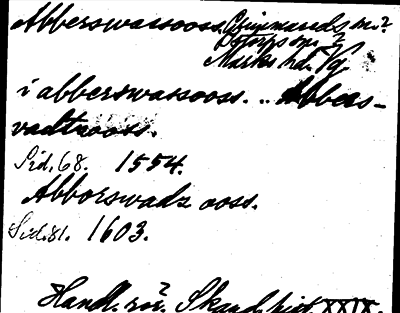 Abberswasooss. Grimmareds sn.?
Istorps sn. ?
Marks hd. Vg
i abberswasooss. .. Abbers-
vadtzooss.
Sid. 68. 1554.
Abborswadz ooss.
Sid. 81. 1603.
Handl. rör. Skand. hist. XXIX.